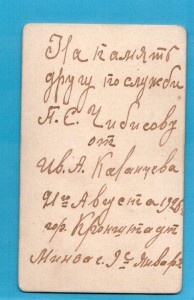 На память
другу по службе
П. С. Чибисову
от
Ив. А. Казанцева
Августа 192
гор. Кронштадт
9го Январ